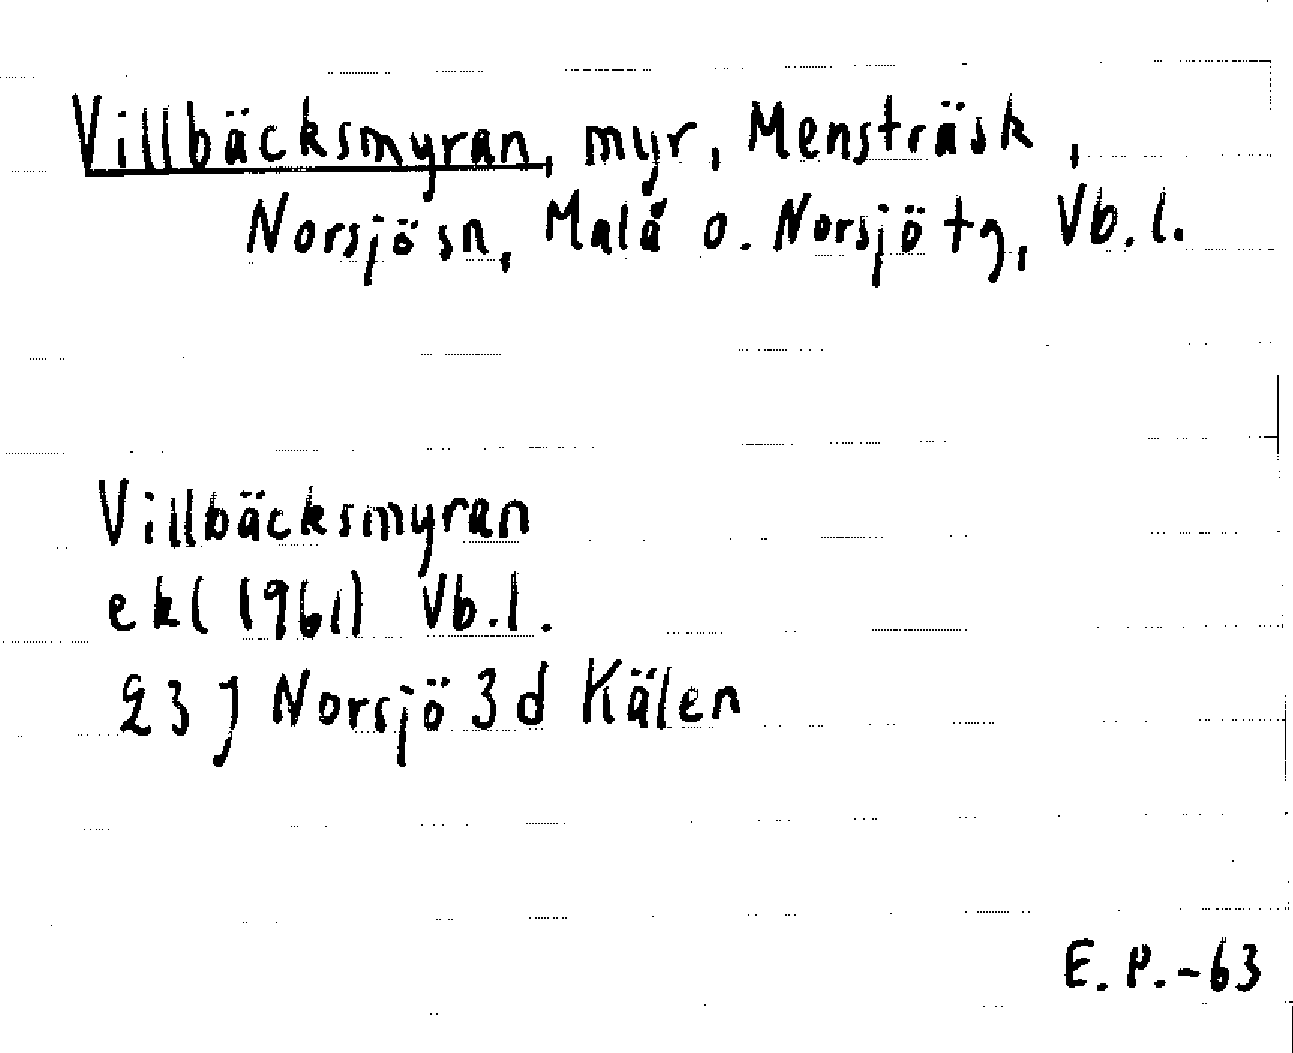 Villbäcksmyran, myr, Mensträsk,
Norsjö sn, Malå o. Norsjö tg, Vb. l.
Villbäcksmyran
ekl (1961) Vb. l.
23 J Norsjö 3 d Kälen
E. P. -63